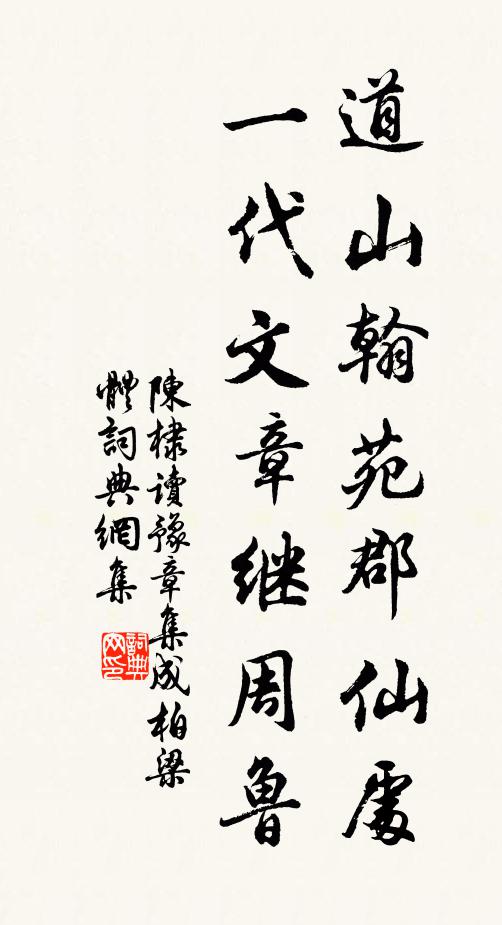 道山翰苑郡仙處
一代文章继周魯
陳棣讀豫章集成柏梁
體詞典網集
詞典網印